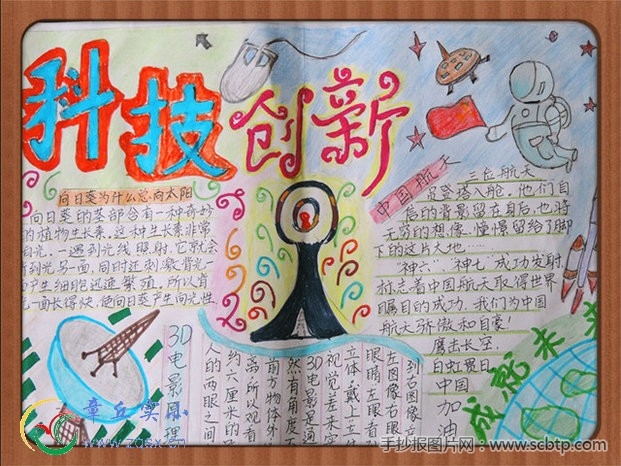 科技创新
向日葵为什么总向太阳
向日葵的茎部含有一种奇妙
的植物生长素。这种生长素非常
光。一遇到光线照射,它就会
到另一面,同时还刺激背光一
产生细胞迅速繁殖。所以背
一面长得快,使向日葵产生向光性
3D电影原理
人的两眼之间
约六厘米的
前方物体外
然有角度不
3D电影是通
视觉差来实
立体,戴上立体
眼睛,左眼看
左图像右眼
到右图像立
中国航天
三位航天
员登塔入舱。他们身
后的背景留在身后,也将
无穷的想像、憧憬留给了脚
下的这片大地……
“神六”“神七”成功发射,
标志着中国航天取得世界
瞩目的成功。我们为中国
航天骄傲和自豪!
鹰击长空,
白虹贯日
中国
加油
成就未来
章丘实小
www.zqsx.cn
手抄报图片网:www.scbtp.com